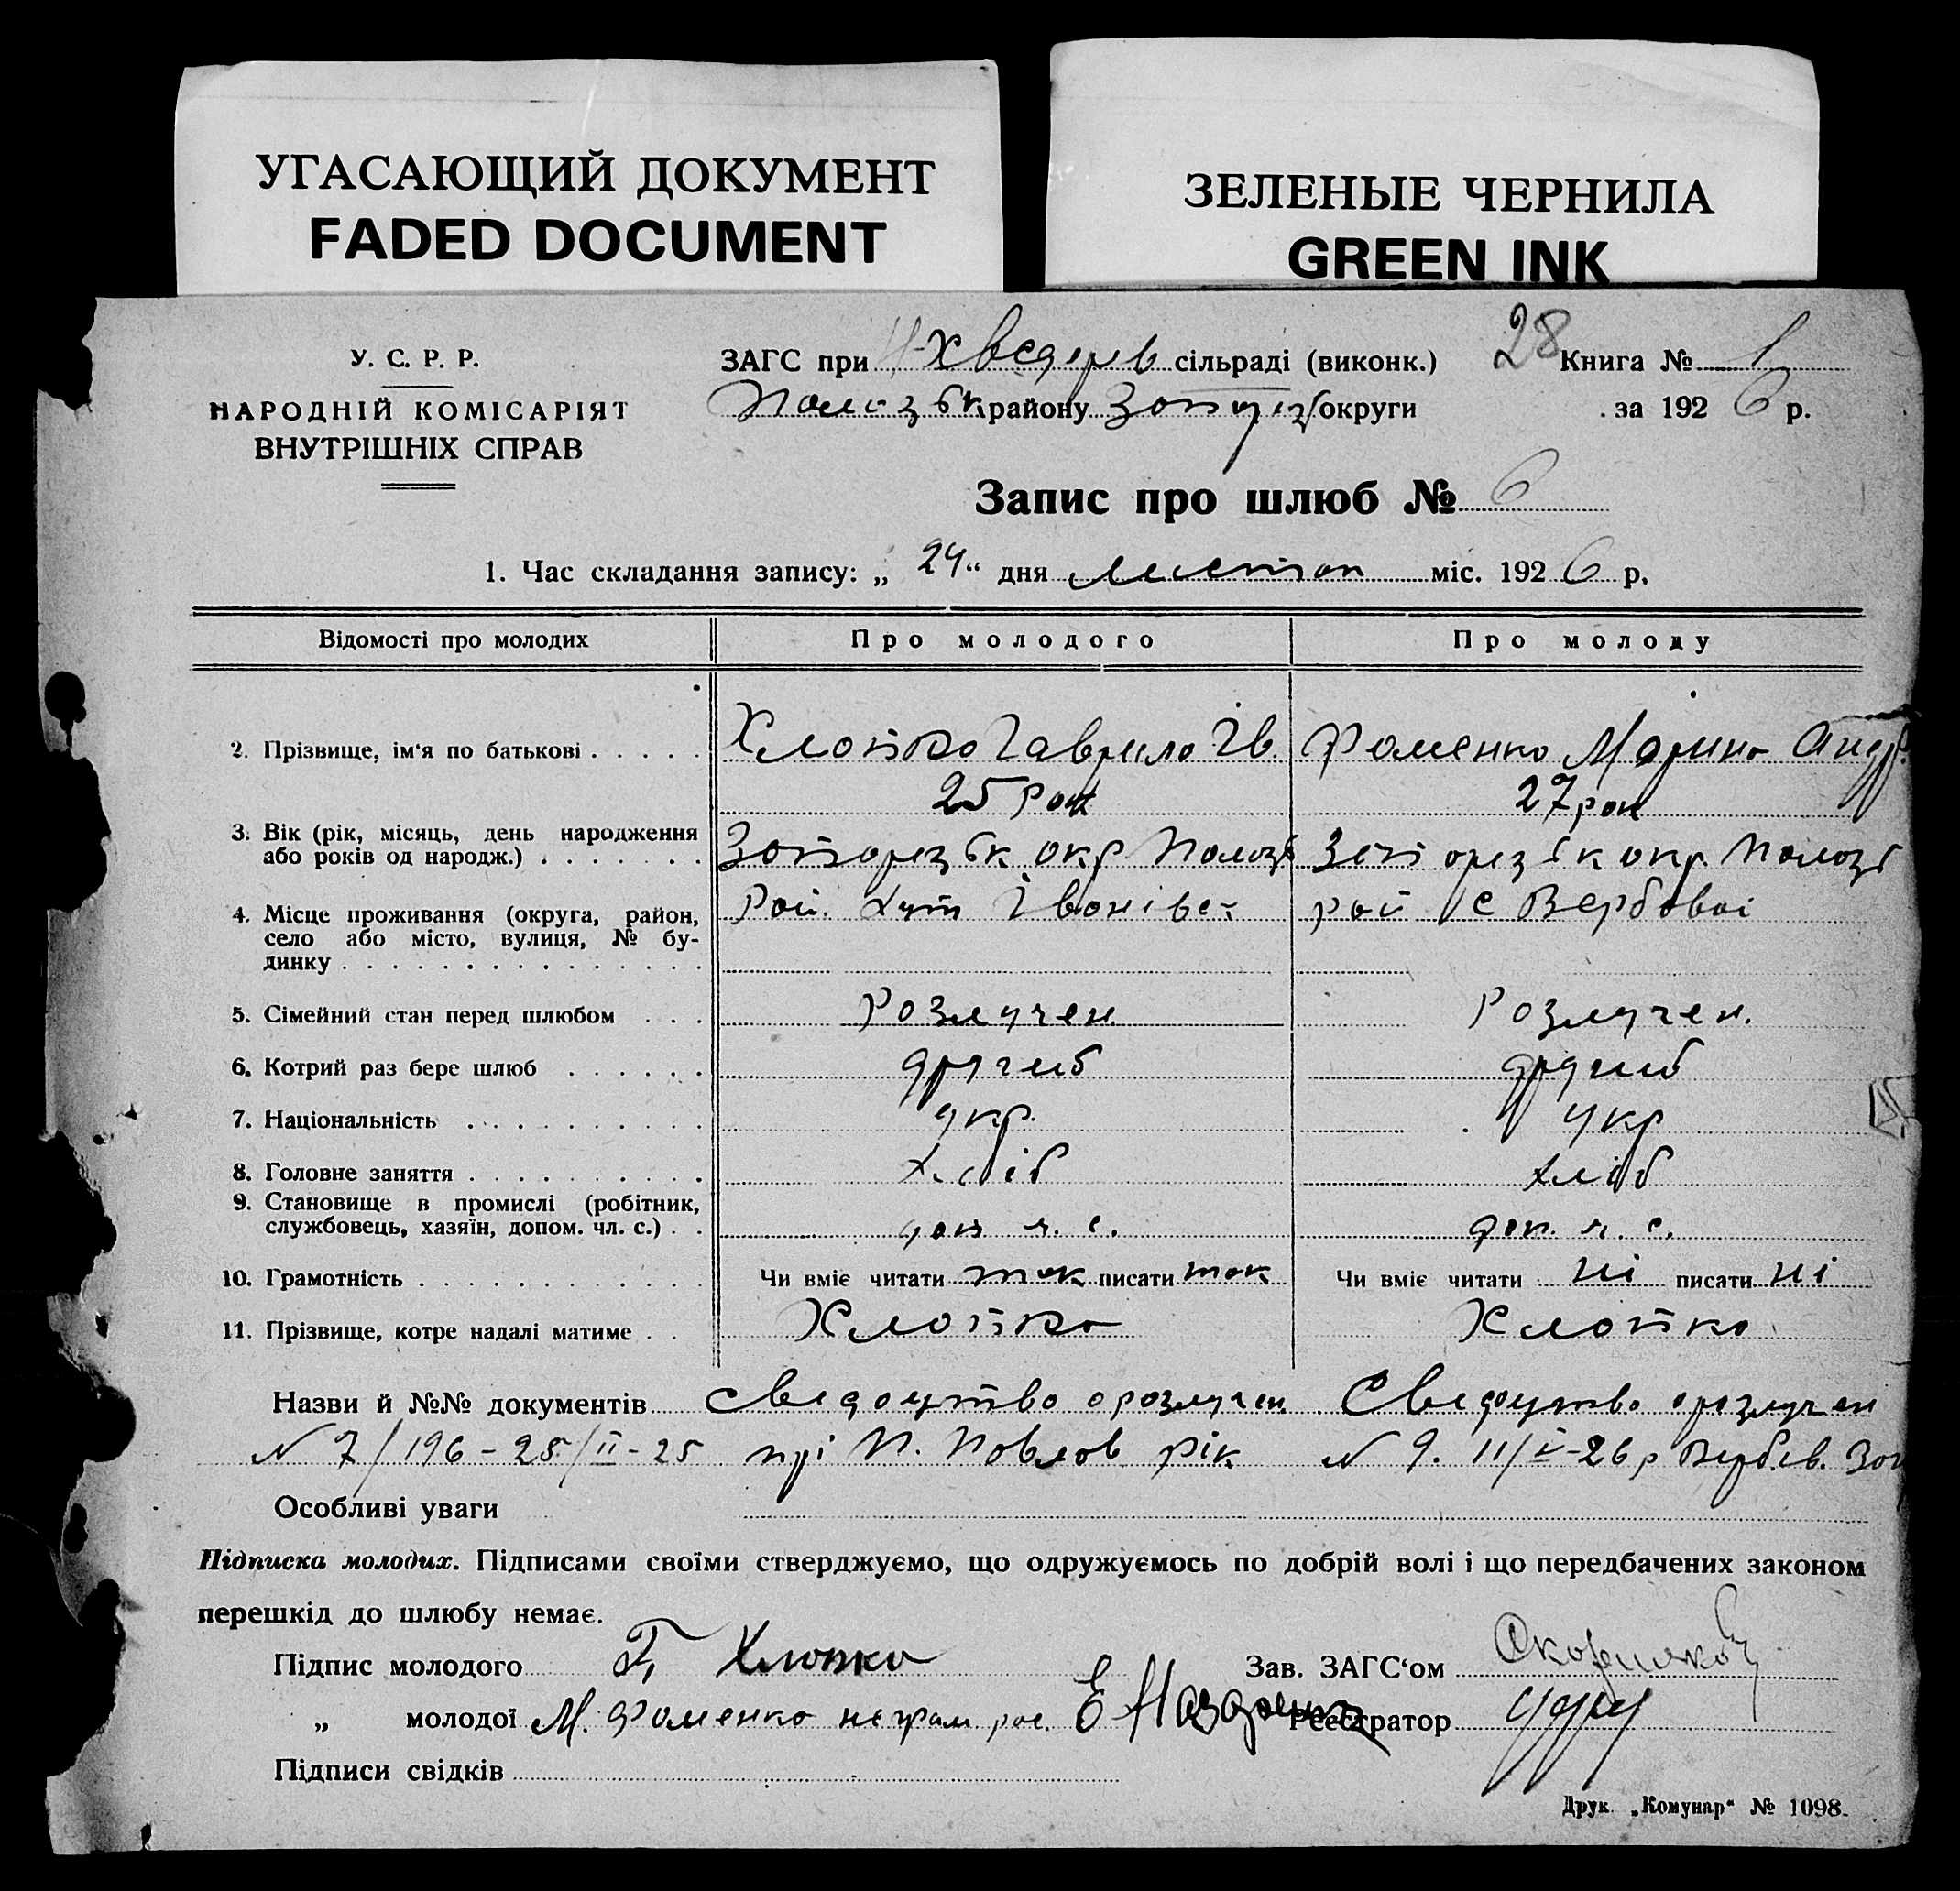 УГАСАЮЩИЙ ДОКУМЕНТ
FADED DOCUMENT
ЗЕЛЕНЫЕ ЧЕРНИЛА
GREEN INK
У. С. Р. Р.
НАРОДНІЙ КОМІСАРІЯТ
ВНУТРІШНІХ СПРАВ
ЗАГС при сільраді (виконк.) 28 Книга № 1
району округи за 1926 р.
Запис про шлюб № 6
1. Час складання запису: „24“ дня міс. 1926 р.
Відомості про молодих Про молодого Про молоду
2. Прізвище, ім'я по батькові Хлопко Гаврило Ів. Фоменко Марина Андр.
25 рок 27 рок
3. Вік (рік, місяць, день народження
або років од народж.) Запорізьк окр Пологів Запорізьк окр. Пологів
4. Місце проживання (округа, район, Рай. хут Іванівка рай с Вербової
село або місто, вулиця, № бу-
динку
5. Сімейний стан перед шлюбом Розлучен Розлучен.
6. Котрий раз бере шлюб другий другий
7. Національність укр. укр
8. Головне заняття хліб хліб
9. Становище в промислі (робітник,
службовець, хазяїн, допом. чл. с.) доп ч. с. доп. ч. с.
10. Грамотність Чи вміє читати так писати так Чи вміє читати ні писати ні
11. Прізвище, котре надалі матиме Хлопко Хлопко
Назви й №№ документів Сведоцтво о розлучен Сведоцтво о розлучен
N 7/196 - 25/II - 25 прі П. Павлов рік N 9. 11/V-26 р Вербов. Зап
Особливі уваги
Підписка молодих. Підписами своїми стверджуємо, що одружуємось по добрій волі і що передбачених законом
перешкід до шлюбу немає.
Підпис молодого Г. Хлопко Зав. ЗАГС‘ом
„ молодої М. Фоменко неграм рос. Е Реєстратор
Підписи свідків
Друк. „Комунар“ № 1098.